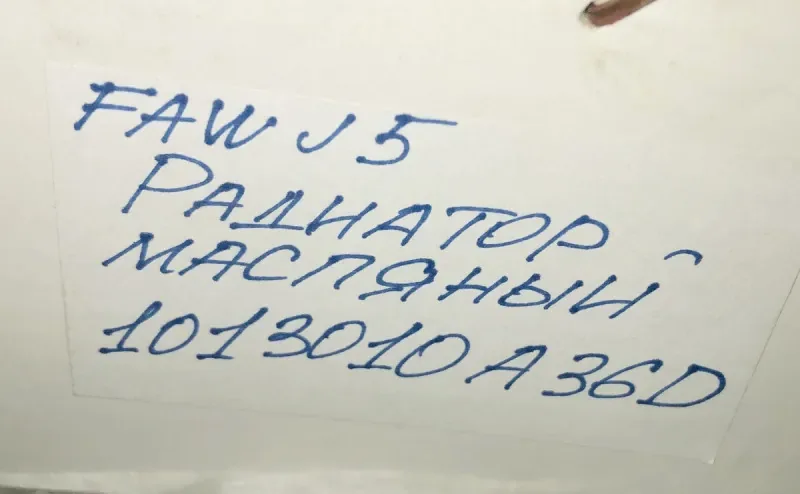 FAW J5
РАДИАТОР
МАСЛЯНЫЙ
1013010A36D